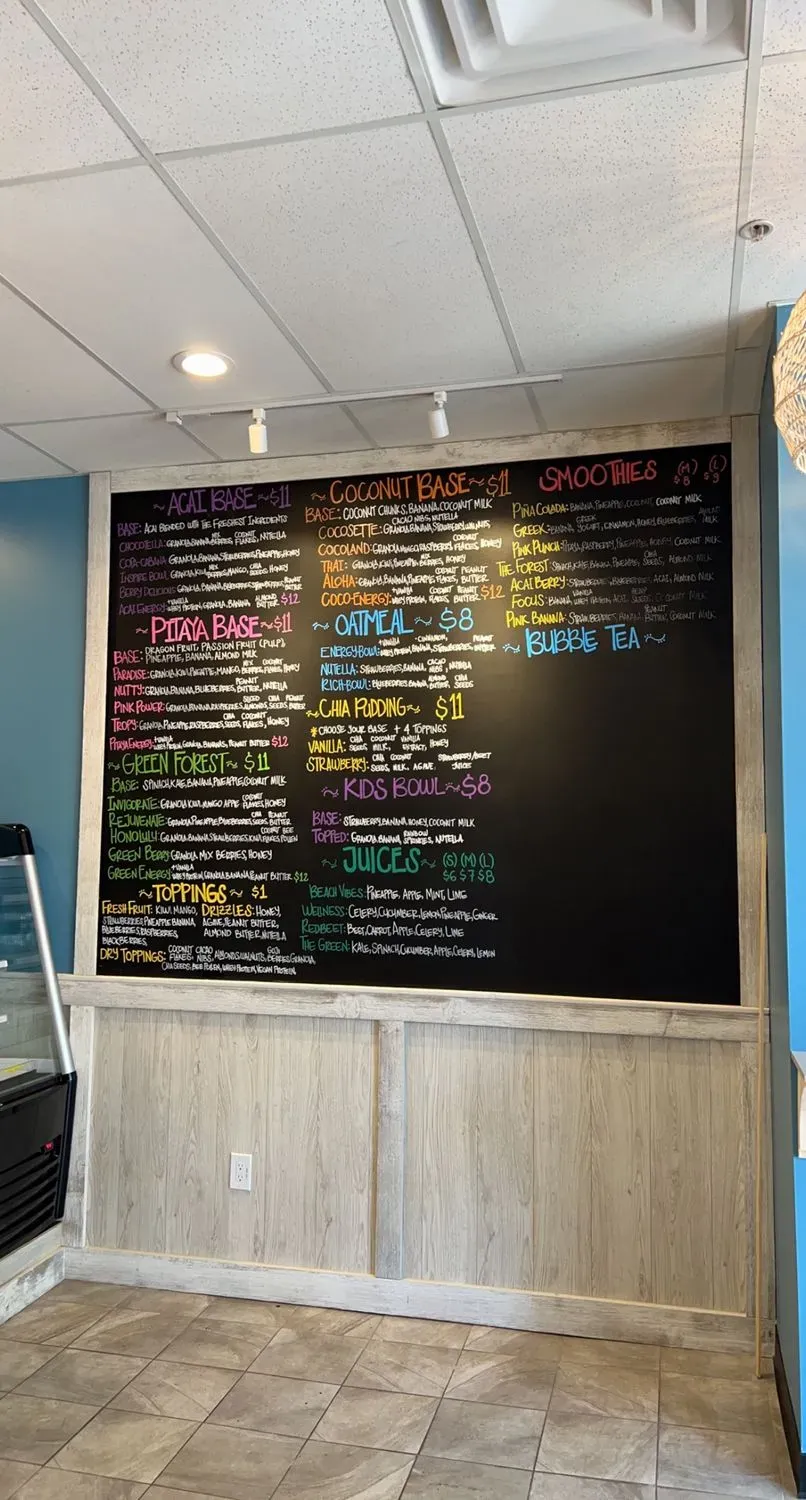 ~ ACAI BASE ~ $11
BASE: ACAI BLENDED WITH THE FRESHEST INGREDIENTS
CHOCOTELLA: GRANOLA, BANANA, MIX BERRIES, COCONUT FLAKES, NUTELLA
COPA-CABANA: GRANOLA, BANANA, STRAWBERRIES, PINEAPPLE, HONEY
INSPIRE BOWL: GRANOLA, KIWI, MIX BERRIES, MANGO, CHIA SEEDS, HONEY
BERRY DELICIOUS: GRANOLA, BANANA, BLUEBERRIES, STRAWBERRIES, PEANUT BUTTER
ACAI ENERGY: +VANILLA WHEY PROTEIN, GRANOLA, BANANA, ALMOND BUTTER $12
~ PITAYA BASE ~ $11
BASE: DRAGON FRUIT, PASSION FRUIT (PULP), PINEAPPLE, BANANA, ALMOND MILK
PARADISE: GRANOLA, KIWI, PINEAPPLE, MANGO, MIX BERRIES, COCONUT FLAKES, HONEY
NUTTY: GRANOLA, BANANA, BLUEBERRIES, PEANUT BUTTER, NUTELLA
PINK POWER: GRANOLA, BANANA, RASPBERRIES, SLICED ALMONDS, CHIA SEEDS, PEANUT BUTTER
TROPY: GRANOLA, PINEAPPLE, RASPBERRIES, CHIA SEEDS, COCONUT FLAKES, HONEY
PITAYA ENERGY: +VANILLA WHEY PROTEIN, GRANOLA, BANANAS, PEANUT BUTTER $12
~ GREEN FOREST ~ $11
BASE: SPINACH, KALE, BANANA, PINEAPPLE, COCONUT MILK
INVIGORATE: GRANOLA, KIWI, MANGO, APPLE, COCONUT FLAKES, HONEY
REJUVENATE: GRANOLA, PINEAPPLE, BLUEBERRIES, CHIA SEEDS, PEANUT BUTTER
HONOLULU: GRANOLA, BANANA, STRAWBERRIES, KIWI, COCONUT FLAKES, BEE POLLEN
GREEN BERRY: GRANOLA, MIX BERRIES, HONEY
GREEN ENERGY: +VANILLA WHEY PROTEIN, GRANOLA, BANANA, PEANUT BUTTER $12
~ TOPPINGS ~ $1
FRESH FRUIT: KIWI, MANGO, STRAWBERRIES, PINEAPPLE, BANANA, BLUEBERRIES, RASPBERRIES, BLACKBERRIES,
DRIZZLES: HONEY, AGAVE, PEANUT BUTTER, ALMOND BUTTER, NUTELLA
DRY TOPPINGS: COCONUT FLAKES, CACAO NIBS, ALMONDS, WALNUTS, GOJI BERRIES, GRANOLA,
CHIA SEEDS, BEE POLLEN, WHEY PROTEIN, VEGAN PROTEIN
~ COCONUT BASE ~ $11
BASE: COCONUT CHUNKS, BANANA, COCONUT MILK
COCOSETTE: GRANOLA, BANANA, STRAWBERRY, WALNUTS, CACAO NIBS, NUTELLA
COCOLAND: GRANOLA, MANGO, RASPBERRIES, COCONUT FLAKES, HONEY
THAI: GRANOLA, KIWI, PINEAPPLE, MIX BERRIES, HONEY
ALOHA: GRANOLA, BANANA, PINEAPPLE, COCONUT FLAKES, PEANUT BUTTER
COCO-ENERGY: +VANILLA WHEY PROTEIN, GRANOLA, BANANA, COCONUT FLAKES, PEANUT BUTTER $12
~ OATMEAL ~ $8
ENERGY BOWL: +VANILLA WHEY PROTEIN, BANANA, CINNAMON, STRAWBERRIES, PEANUT BUTTER
NUTELLA: STRAWBERRIES, BANANA, CACAO NIBS, NUTELLA
RICH-BOWL: BLUEBERRIES, BANANA, ALMOND BUTTER, CHIA SEEDS
~ CHIA PUDDING ~ $11
* CHOOSE YOUR BASE + 4 TOPPINGS
VANILLA: CHIA SEEDS, COCONUT MILK, VANILLA EXTRACT, HONEY
STRAWBERRY: CHIA SEEDS, COCONUT MILK, AGAVE, STRAWBERRY/BEET JUICE
~ KIDS BOWL ~ $8
BASE: STRAWBERRY, BANANA, HONEY, COCONUT MILK
TOPPED: GRANOLA, BANANA, RAINBOW SPRINKLES, NUTELLA
~ JUICES ~ (S) (M) (L)
$6 $7 $8
BEACH VIBES: PINEAPPLE, APPLE, MINT, LIME
WELLNESS: CELERY, CUCUMBER, LEMON, PINEAPPLE, GINGER
REDBEET: BEET, CARROT, APPLE, CELERY, LIME
THE GREEN: KALE, SPINACH, CUCUMBER, APPLE, CELERY, LEMON
SMOOTHIES (M) (L)
$8 $9
PIÑA COLADA: BANANA, PINEAPPLE, COCONUT, COCONUT MILK
GREEK: BANANA, GREEK YOGURT, CINNAMON, HONEY, BLUEBERRIES, ALMOND MILK
PINK PUNCH: PITAYA, RASPBERRY, PINEAPPLE, HONEY, COCONUT MILK
THE FOREST: SPINACH, KALE, BANANA, PINEAPPLE, CHIA SEEDS, ALMOND MILK
ACAI BERRY: STRAWBERRIES, BLUEBERRIES, ACAI, ALMOND MILK
FOCUS: BANANA, VANILLA WHEY PROTEIN, ACAI, HEMP SEEDS, COCONUT MILK
PINK BANANA: STRAWBERRIES, BANANA, PEANUT BUTTER, COCONUT MILK
~ BUBBLE TEA ~